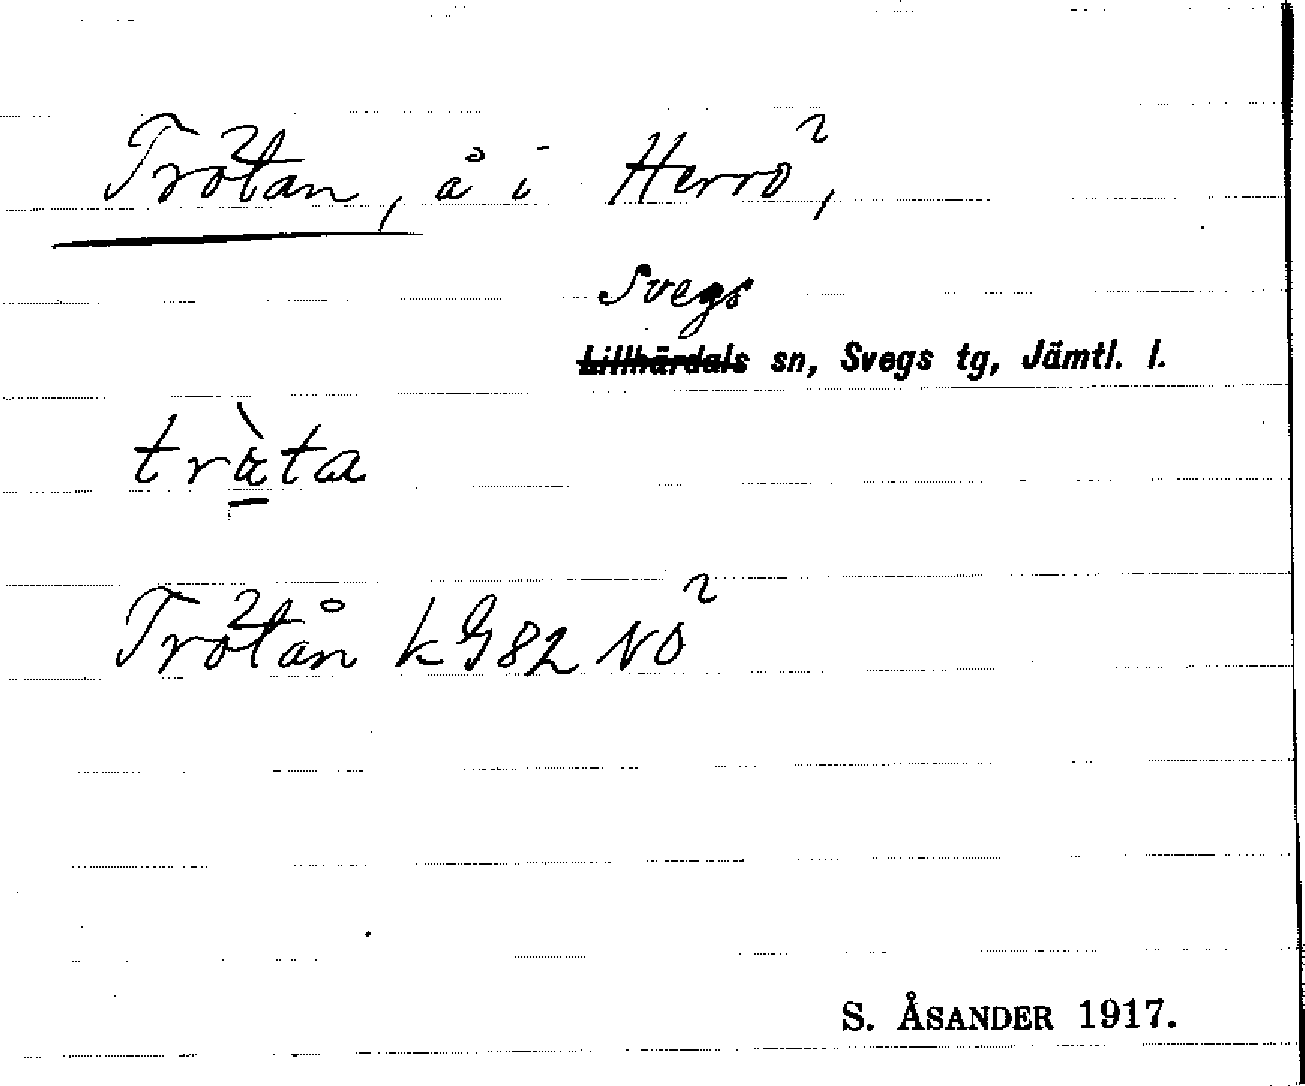 Trötan, å i Herrö,
Svegs
Lillhärdals sn, Svegs tg, Jämtl. l.
träta
Trötån k G82 NÖ
S. ÅSANDER 1917.